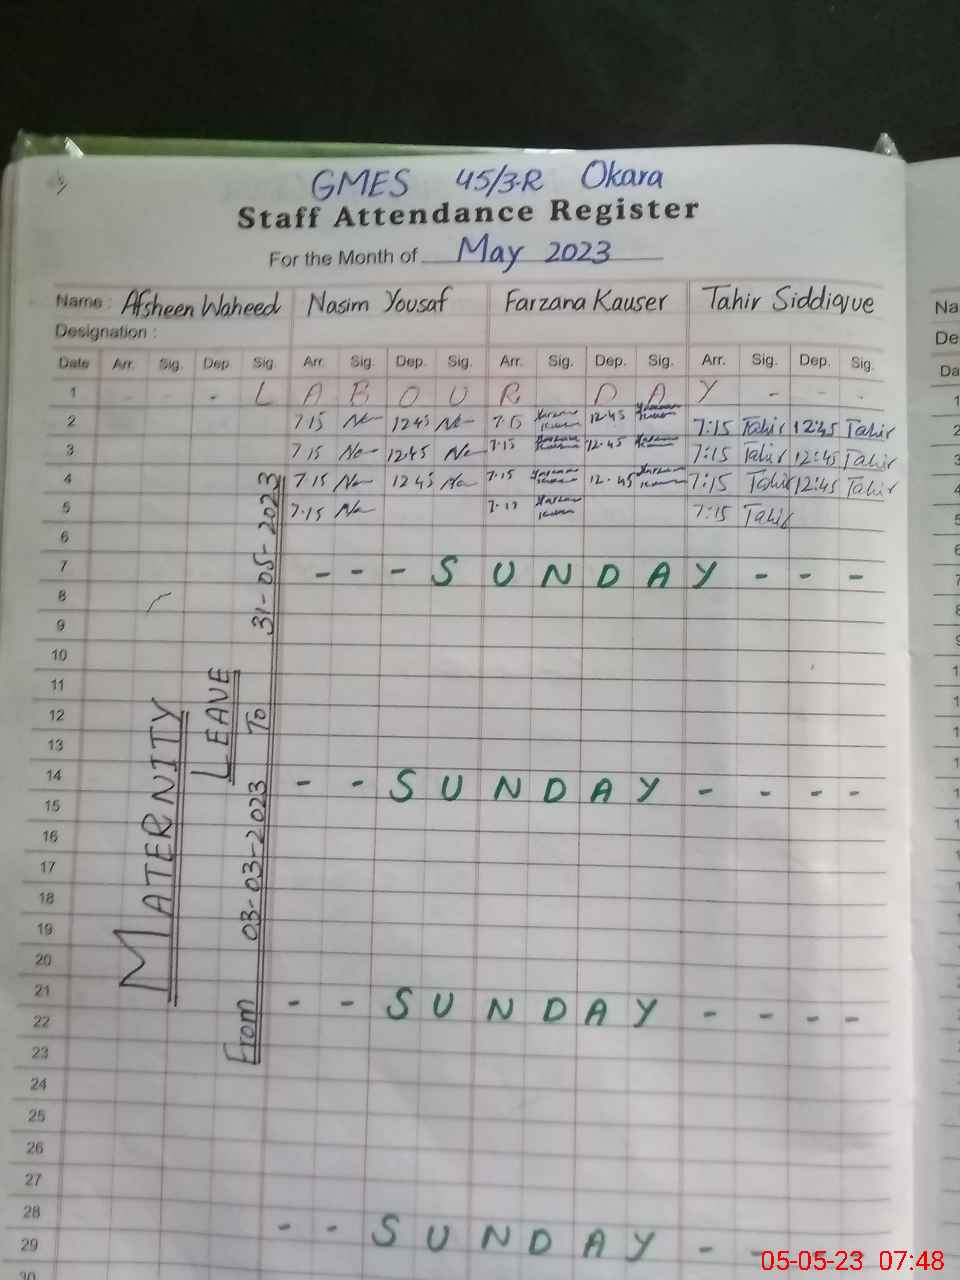 GMES 45/3-R Okara
Staff Attendance Register
For the Month of May 2023
Name : Afsheen Waheed Nasim Yousaf Farzana Kauser Tahir Siddique Na
Designation : De
Date Arr. Sig. Dep Sig. Arr. Sig. Dep. Sig. Arr. Sig. Dep. Sig. Arr. Sig. Dep. Sig. Da
1 - - - L A B O U R D A Y - - -
2 7 15 12 45 12-45 7:15 Tahir 12:45 Tahir
3 7 15 12.45 7.15 12.45 7:15 Tahir 12:45 Tahir
4 7.15 12 45 7.15 12.45 7:15 Tahir 12:45 Tahir
5 7.15 7:15 Tahir
6
7 - - - S U N D A Y - - -
8
9
10
11
12
13
14 - - S U N D A Y - - - -
15
16
17
18
19
20
21 - - S U N D A Y - - - -
22
23
24
25
26
27
28 - - S U N D A Y - -
29
30
MATERNITY
LEAVE
From 03-03-2023 To 31-05-2023
05-05-23 07:48